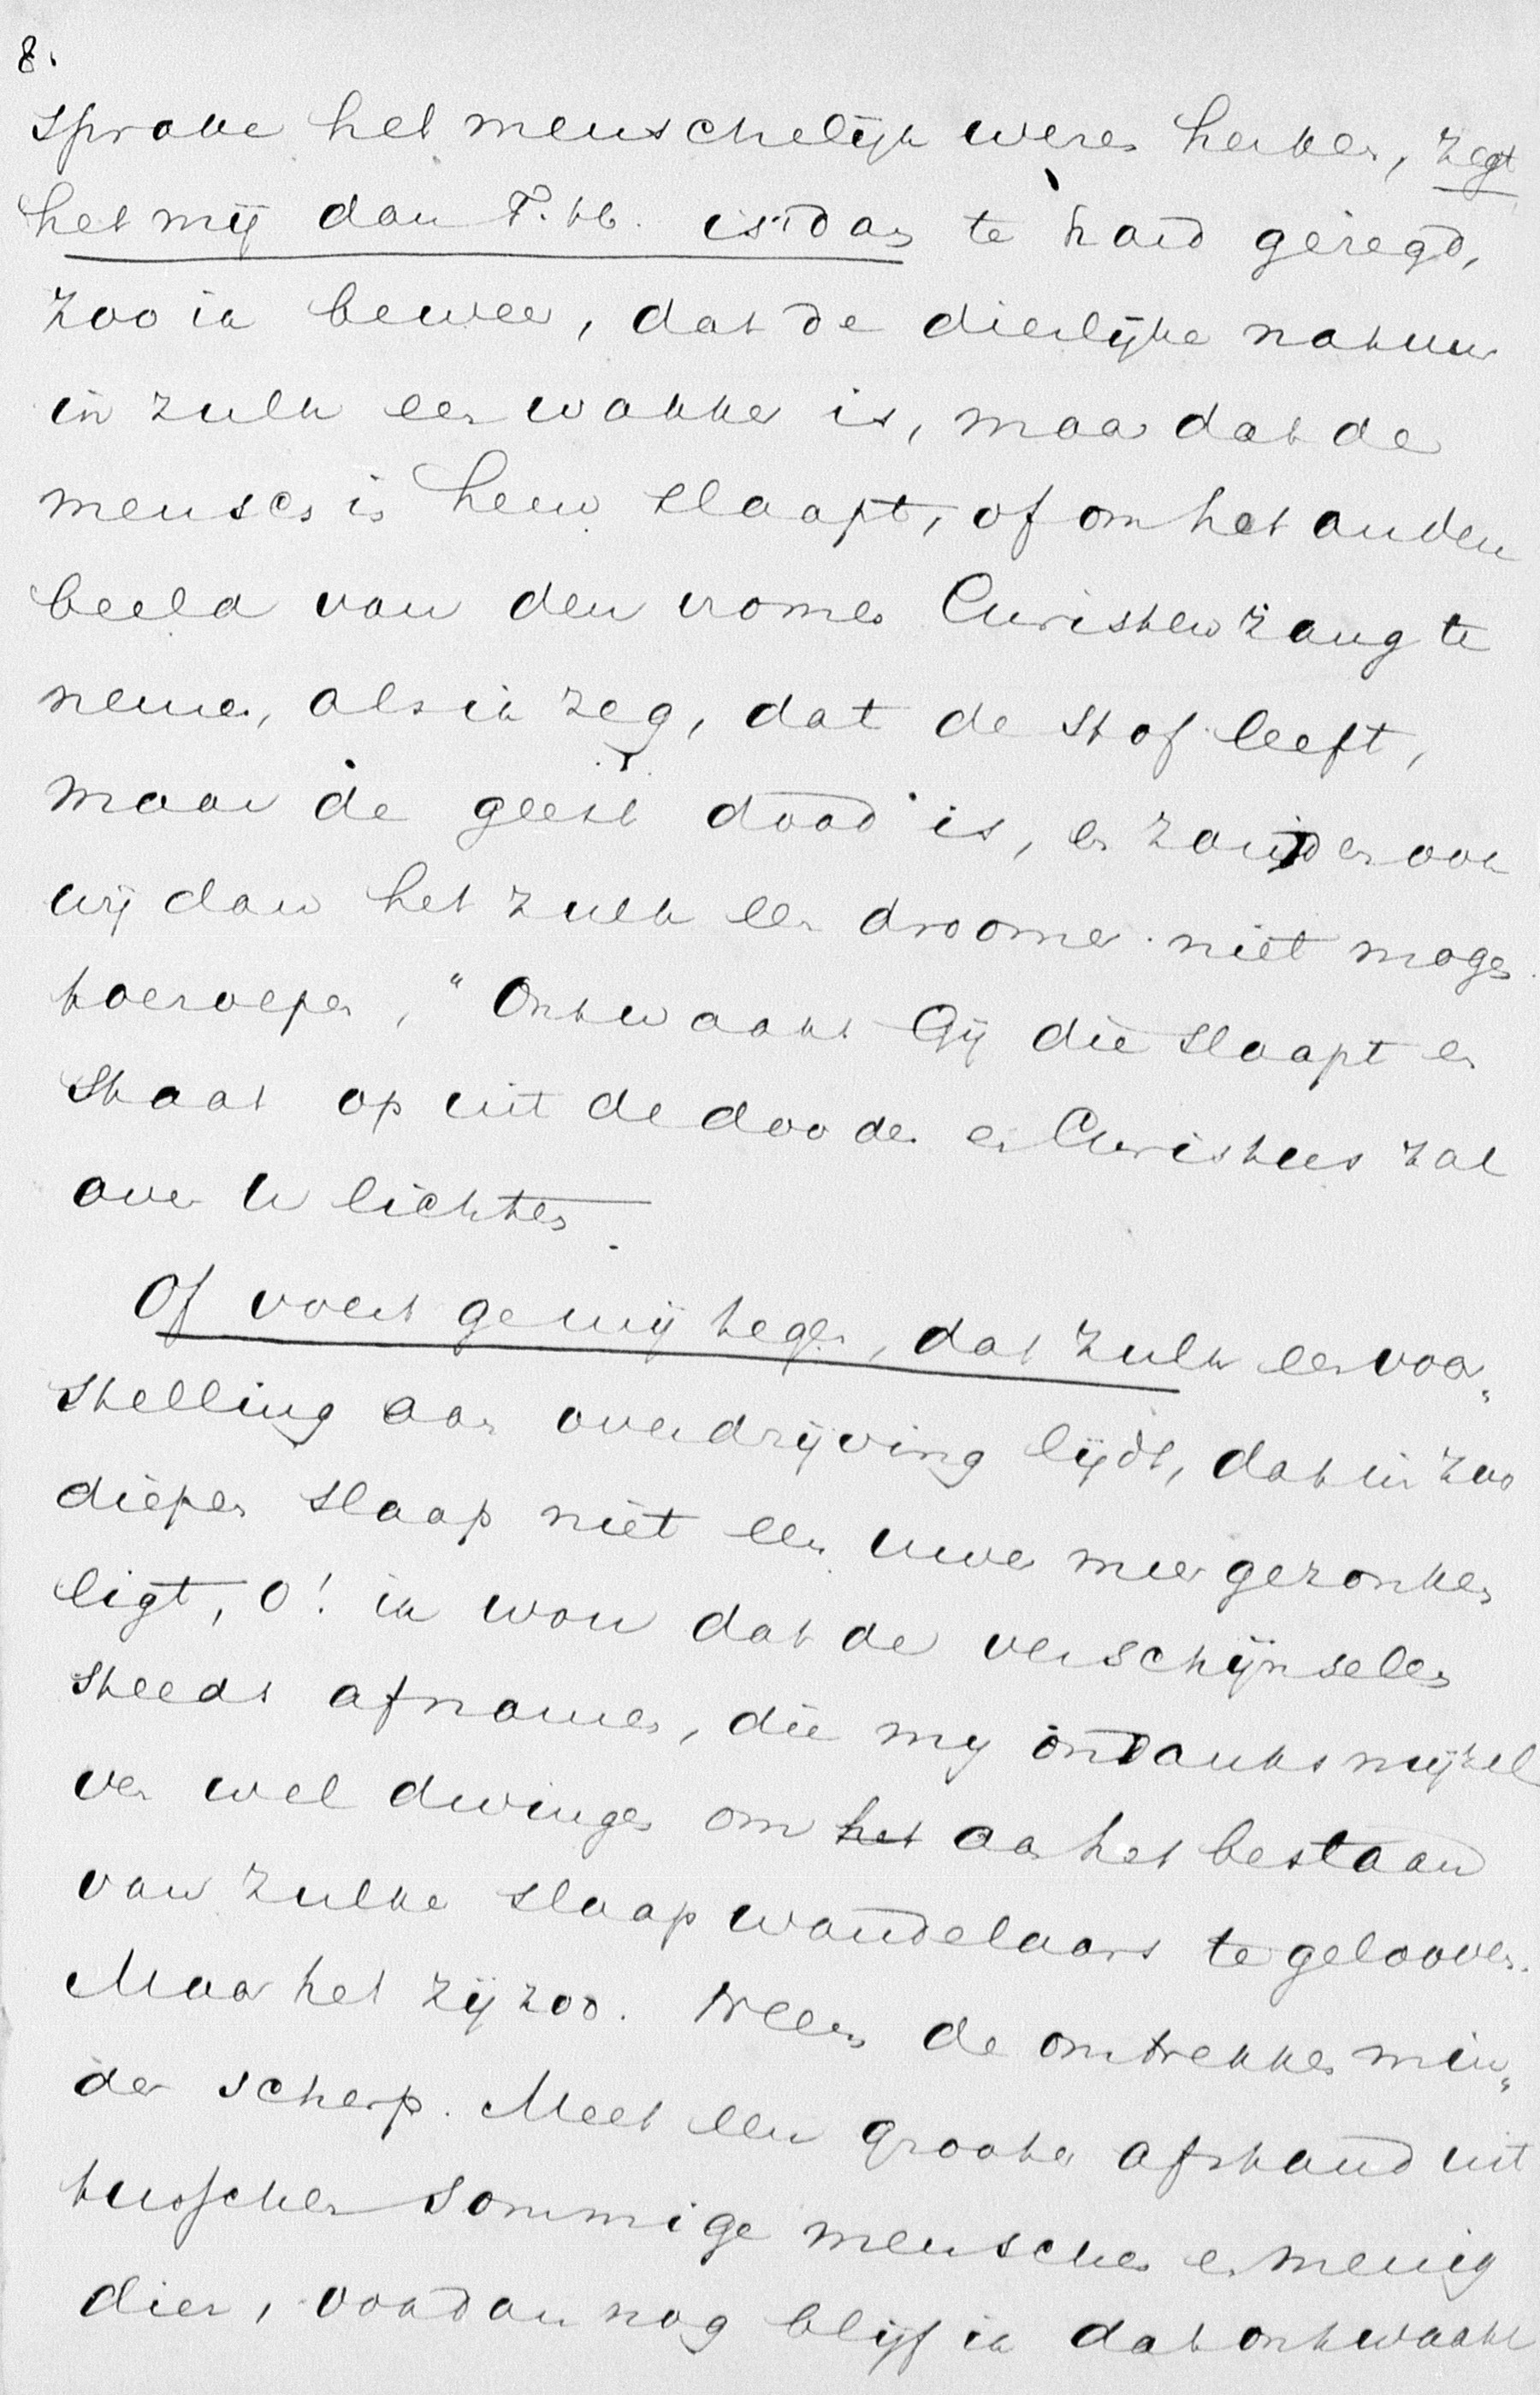 8.
sprake het menschelijk wezen herken, zegt
het mij dan T. H. is dan te hard gezegd,
zoo ik beweer, dat de dierlijke natuur
in zulk een wakker is, maar dat de
mensch in hem slaapt, of om het ander
beeld van den vromen Christenzang te
nemen, als ik zeg, dat de stof leeft,
maar de geest dood is, en zouden ook
wij dan het zulk een droomer niet mogen
toeroepen, "Ontwaakt Gij die slaapt en
staat op uit de dooden en Christus zal
over U lichten.
Of voert ge mij tegen, dat zulk een voor„
stelling aan overdrijving lijdt, dat in zoo
diepen slaap niet een uwer meer gezonken
ligt, o! ik wou dat de verschijnselen
steeds afnamen, die mij ondanks mijzel
ven wel dwingen om het aan het bestaan
van zulke slaapwandelaars te gelooven.
Maar het zij zoo. Neem de omtrekken min„
der scherp. Meet een grooten afstand uit
tusschen sommige menschen en menig
dier, ook dan nog blijf ik dat ontwaakt